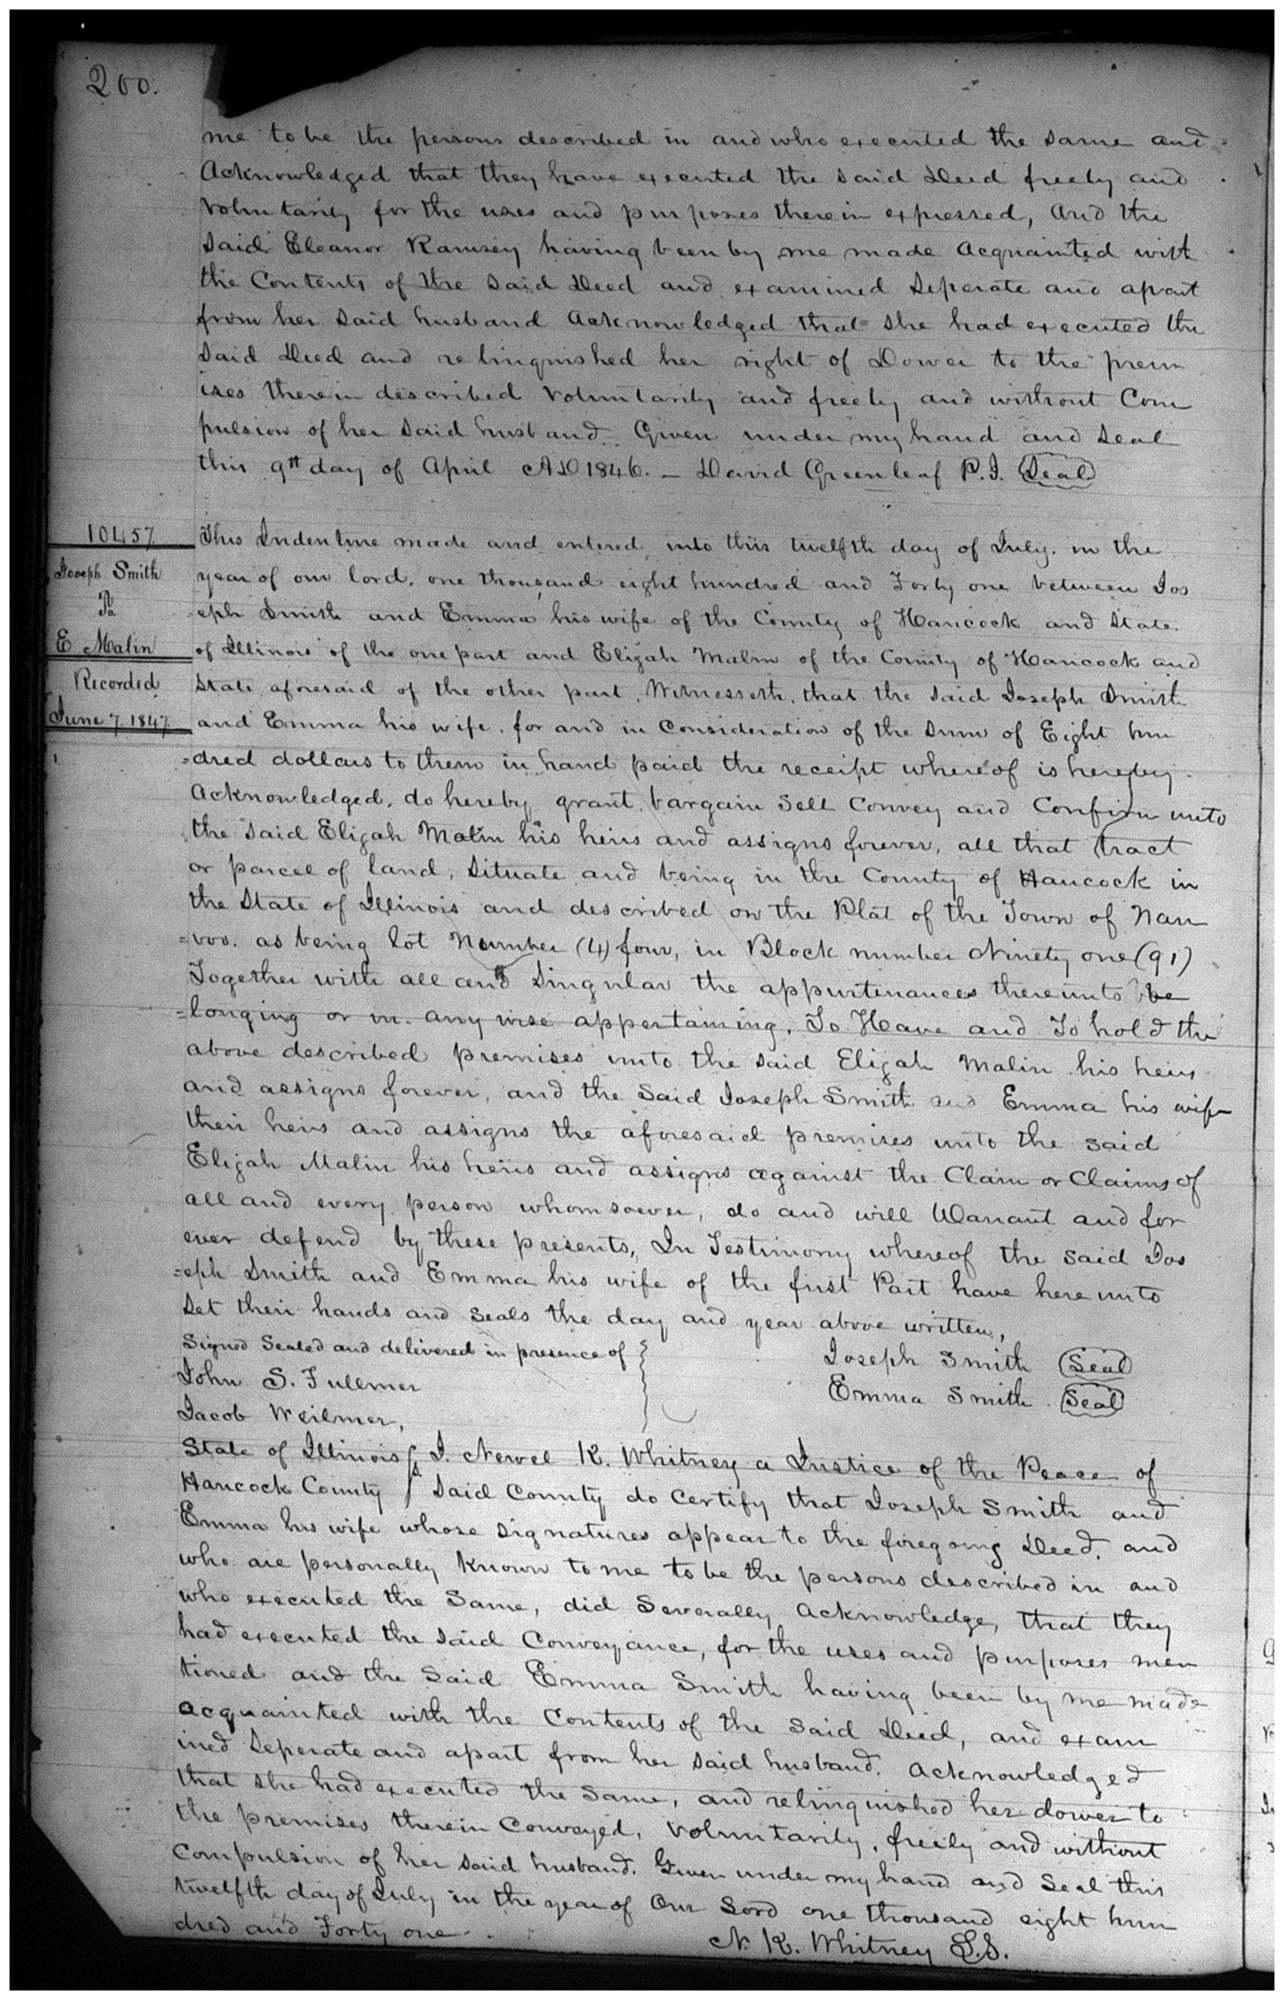 200.
me to be the persons described in and who executed the same and
Acknowledged that they have executed the said Deed freely and
Voluntarily for the uses and purposes therein expressed, And the
said Eleanor Ramsey having been by me made Acquainted with
the Contents of the said Deed and examined Seperate and apart
from her said husband Acknowledged that she had executed the
said Deed and relinquished her right of Dower to the prem
ises therein described Voluntarily and freely and without Com
pulsion of her said husband. Given under my hand and Seal
this 9th day of April AD 1846. — David Greenleaf P.J. Seal
10457
Joseph Smith
To
E Malin
Recorded
June 7. 1847.
This Indenture made and entered into this twelfth day of July. in the
year of our lord. one thousand eight hundred and Forty one between Jos
eph Smith and Emma his wife of the County of Hancock and State.
of Illinois of the one part and Elijah Malin of the County of Hancock and
State aforesaid of the other part. Witnesseth, that the said Joseph Smith
and Emma his wife. for and in Consideration of the Sum of Eight hun
=dred dollars to them in hand paid the receipt whereof is hereby
Acknowledged. do hereby grant bargain Sell Convey and Confirm unto
the said Elijah Malin his heirs and assigns forever, all that tract
or parcel of land, Situate and being in the County of Hancock in
the State of Illinois and described on the Plat of the Town of Nau
=voo. as being lot Number (4) four, in Block number Ninety one (91)
Together with all and Singular the appurtenances thereunto be
=longing or in any wise appertaining. To Have and To hold the
above described premises unto the said Elijah Malin his heirs
and assigns forever, and the Said Joseph Smith and Emma his wife
their heirs and assigns the aforesaid premises unto the said
Elijah Malin his heirs and assigns against the Claim or Claims of
all and every person whomsoever, do and will Warrant and for
ever defend by these presents, In Testimony whereof the said Jos
=eph Smith and Emma his wife of the first Part have here unto
Set their hands and Seals the day and year above written,
Signed Sealed and delivered in presence of
John S. Fullmer
Jacob Weilmer,
Joseph Smith Seal
Emma Smith Seal
State of Illinois } I. Newel K. Whitney a Justice of the Peace of
Hancock County } Said County do Certify that Joseph Smith and
Emma his wife whose signatures appear to the foregoing Deed. and
who are personally Known to me to be the persons described in and
who executed the Same, did Severally Acknowledge, that they
had executed the said Conveyance, for the uses and purposes men
tioned and the Said Emma Smith having been by me made
acquainted with the Contents of the Said Deed, and exam
ined Seperate and apart from her said husband. Acknowledged
that she had executed the Same, and relinquished her dower to
the premises therein Conveyed, Voluntarily, freely and without
Compulsion of her said husband. Given under my hand and Seal this
twelfth day of July in the year of Our Lord one thousand eight hun
dred and Forty one.
N. K. Whitney L.S.